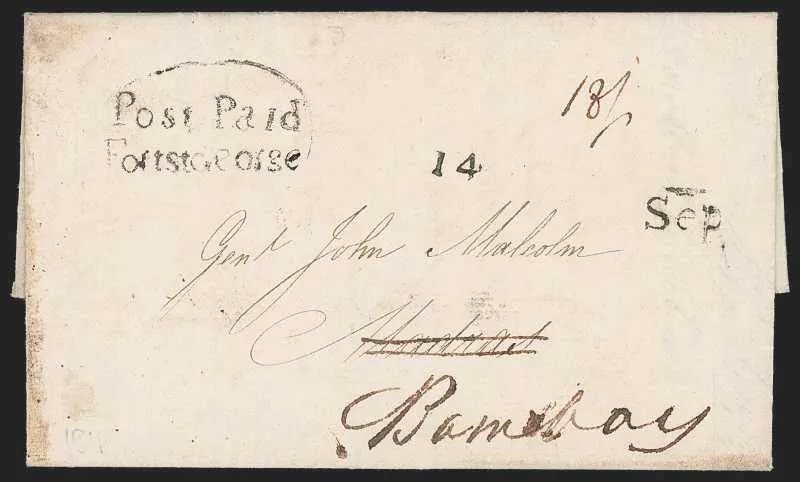 Post Paid
Fortstgeorge
18/
14
Sep
Genl John Malcolm
Madras
Bombay